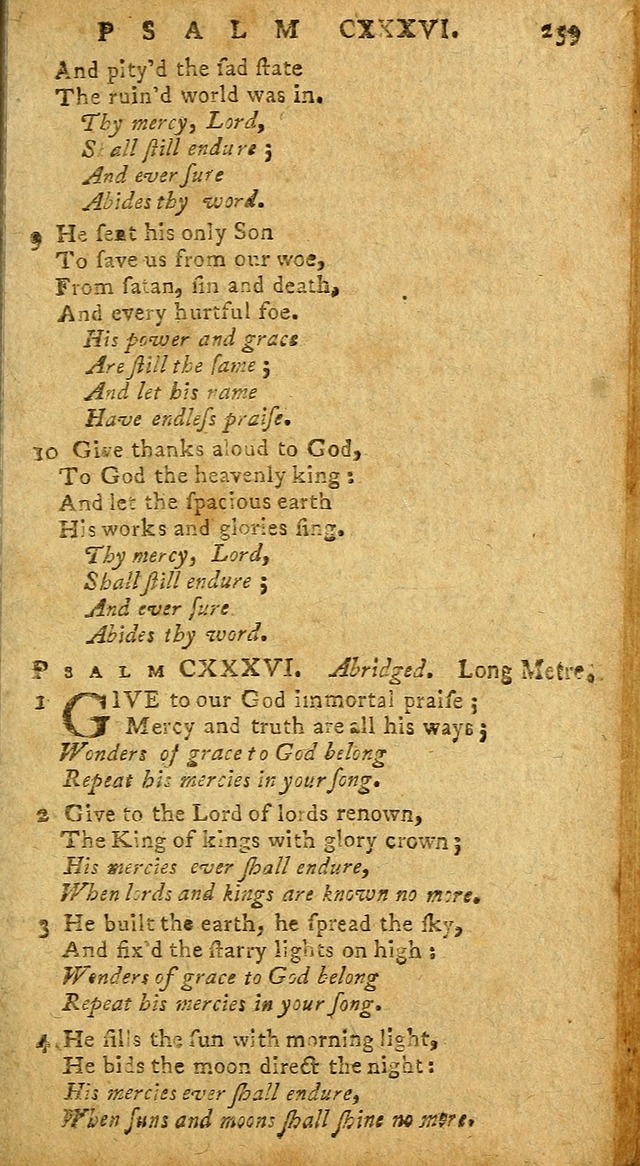 PSALM CXXXVI. 259
And pity'd the ſad ſtate
The ruin'd world was in.
Thy mercy, Lord,
Shall ſtill endure ;
And ever ſure
Abides thy word.
9 He ſent his only Son
To ſave us from our woe,
From ſatan, ſin and death,
And every hurtful foe.
His power and grace
Are ſtill the ſame ;
And let his name
Have endleſs praiſe.
10 Give thanks aloud to God,
To God the heavenly king :
And let the ſpacious earth
His works and glories ſing.
Thy mercy, Lord,
Shall ſtill endure ;
And ever ſure
Abides thy word.
PSALM CXXXVI. Abridged. Long Metre.
1 GIVE to our God immortal praiſe ;
Mercy and truth are all his ways ;
Wonders of grace to God belong
Repeat his mercies in your ſong.
2 Give to the Lord of lords renown,
The King of kings with glory crown ;
His mercies ever ſhall endure,
When lords and kings are known no more.
3 He built the earth, he ſpread the ſky,
And fix'd the ſtarry lights on high :
Wonders of grace to God belong
Repeat his mercies in your ſong.
4 He fills the ſun with morning light,
He bids the moon direct the night :
His mercies ever ſhall endure,
When ſuns and moons ſhall ſhine no more.